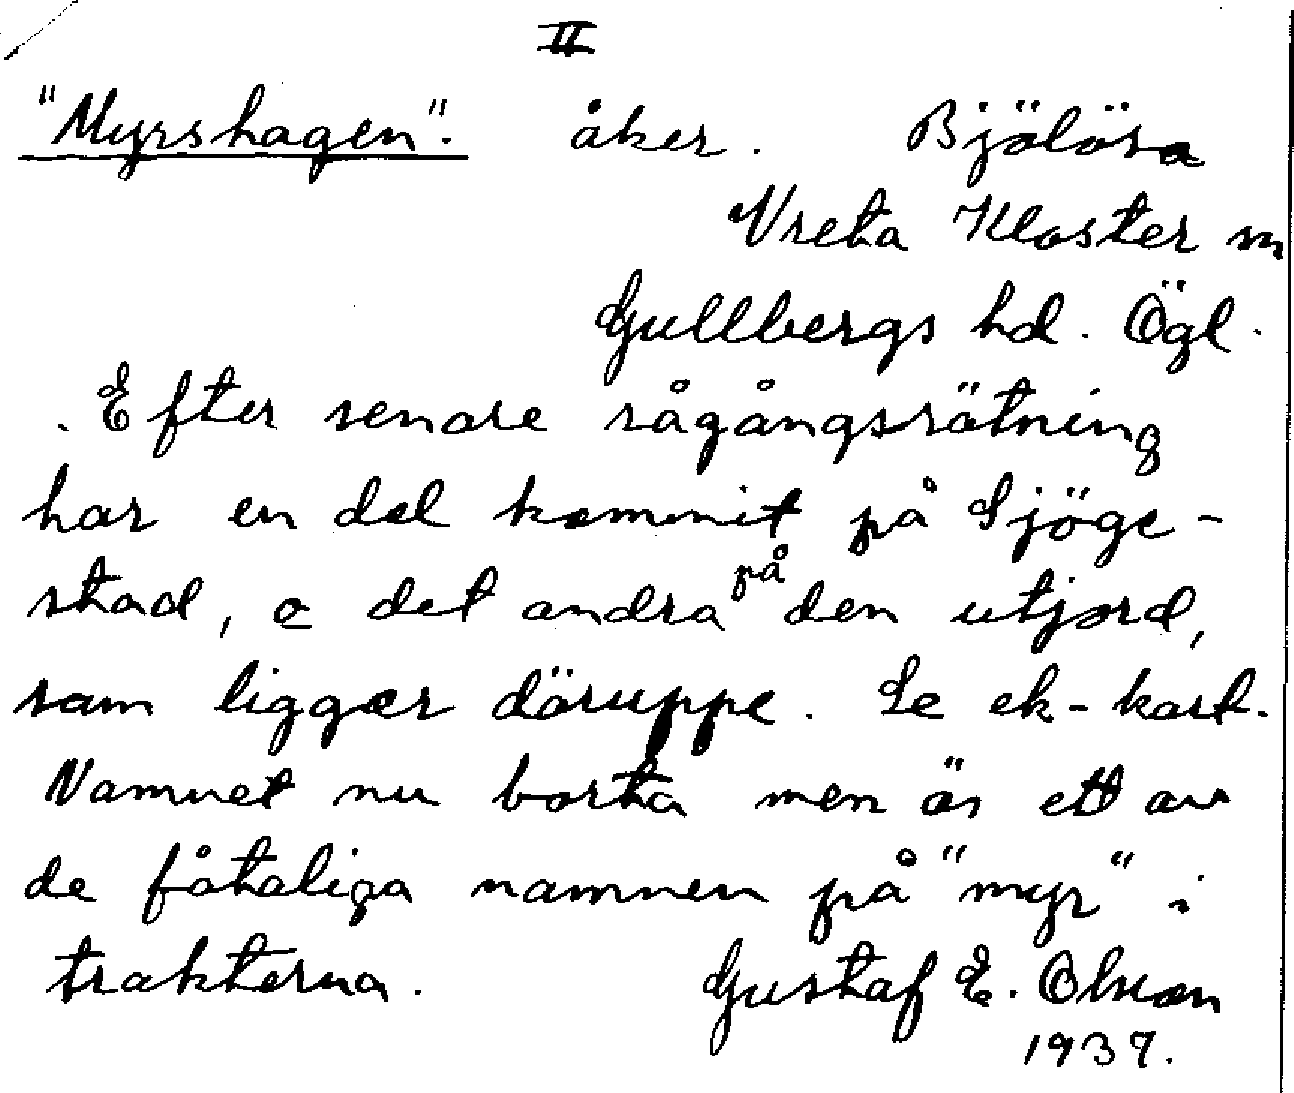 II
"Myrshagen". åker. Bjälösa
Vreta Kloster sn
Gullbergs hd. Ögl.
. Efter senare rågångsrätning
har en del kommit på Sjöge-
stad, o det andra på den utjord,
som ligger däruppe. Se ek-kart.
Namnet nu borta men är ett av
de fåtaliga namnen på "myr" i
trakterna. Gustaf E. Olsson
1937.